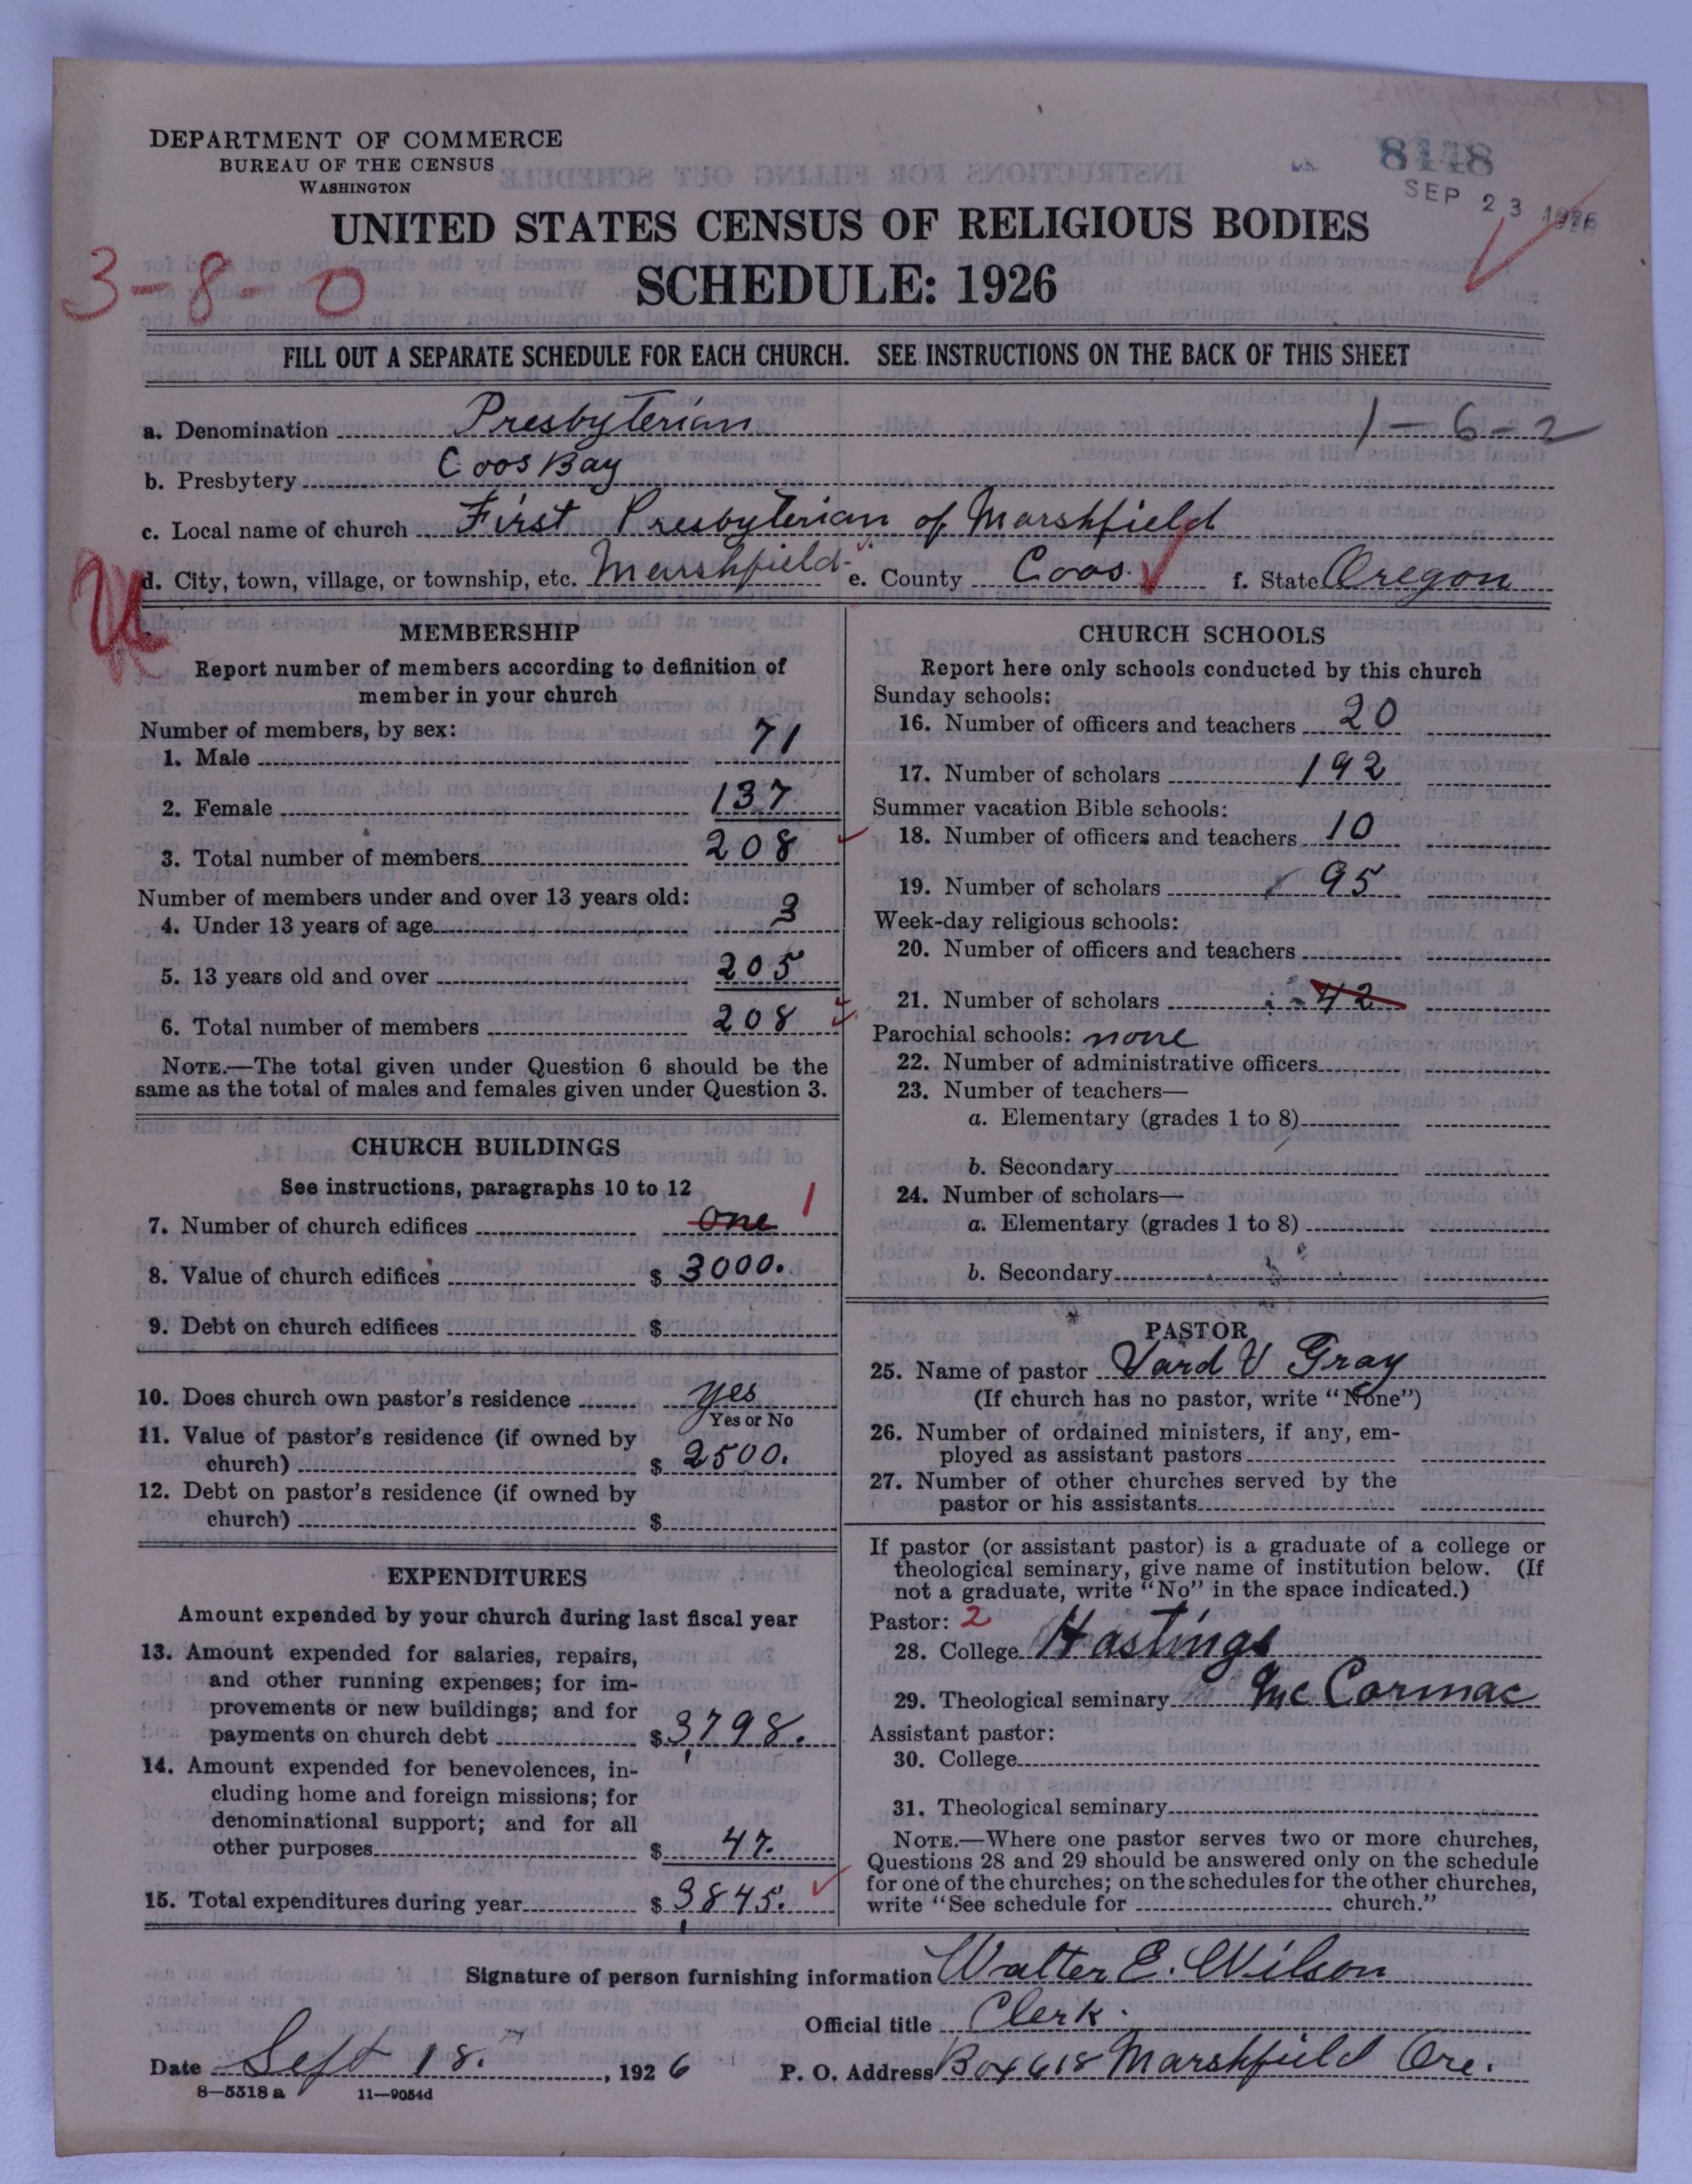 DEPARTMENT OF COMMERCE
BUREAU OF THE CENSUS
WASHINGTON
8148
SEP 23 1926
UNITED STATES CENSUS OF RELIGIOUS BODIES
3-8-0
SCHEDULE: 1926
FILL OUT A SEPARATE SCHEDULE FOR EACH CHURCH. SEE INSTRUCTIONS ON THE BACK OF THIS SHEET
a. Denomination Presbyterian 1-6-2
b. Presbytery Coos Bay
c. Local name of church First Presbyterian of Marshfield
d. City, town, village, or township, etc. Marshfield e. County Coos f. State Oregon
MEMBERSHIP
Report number of members according to definition of
member in your church
Number of members, by sex:
1. Male 71
2. Female 137
3. Total number of members 208
Number of members under and over 13 years old:
4. Under 13 years of age 3
5. 13 years old and over 205
6. Total number of members 208
NOTE.—The total given under Question 6 should be the
same as the total of males and females given under Question 3.
CHURCH BUILDINGS
See instructions, paragraphs 10 to 12
7. Number of church edifices one 1
8. Value of church edifices $ 3000.
9. Debt on church edifices $
10. Does church own pastor's residence yes
Yes or No
11. Value of pastor's residence (if owned by
church) $ 2500.
12. Debt on pastor's residence (if owned by
church) $
EXPENDITURES
Amount expended by your church during last fiscal year
13. Amount expended for salaries, repairs,
and other running expenses; for im-
provements or new buildings; and for
payments on church debt $ 3,798.
14. Amount expended for benevolences, in-
cluding home and foreign missions; for
denominational support; and for all
other purposes $ 47.
15. Total expenditures during year $ 3,845.
CHURCH SCHOOLS
Report here only schools conducted by this church
Sunday schools:
16. Number of officers and teachers 20
17. Number of scholars 192
Summer vacation Bible schools:
18. Number of officers and teachers 10
19. Number of scholars 95
Week-day religious schools:
20. Number of officers and teachers
21. Number of scholars 42
Parochial schools: none
22. Number of administrative officers
23. Number of teachers—
a. Elementary (grades 1 to 8)
b. Secondary
24. Number of scholars—
a. Elementary (grades 1 to 8)
b. Secondary
PASTOR
25. Name of pastor V Gray
(If church has no pastor, write "None")
26. Number of ordained ministers, if any, em-
ployed as assistant pastors
27. Number of other churches served by the
pastor or his assistants
If pastor (or assistant pastor) is a graduate of a college or
theological seminary, give name of institution below. (If
not a graduate, write "No" in the space indicated.)
Pastor: 2
28. College Hastings
29. Theological seminary Mc Cormac
Assistant pastor:
30. College
31. Theological seminary
NOTE.—Where one pastor serves two or more churches,
Questions 28 and 29 should be answered only on the schedule
for one of the churches; on the schedules for the other churches,
write "See schedule for church."
Signature of person furnishing information Walter E. Wilson
Official title Clerk.
Date Sept 18. , 1926 P. O. Address Box 618 Marshfield Ore.
8—5518 a 11—9054d